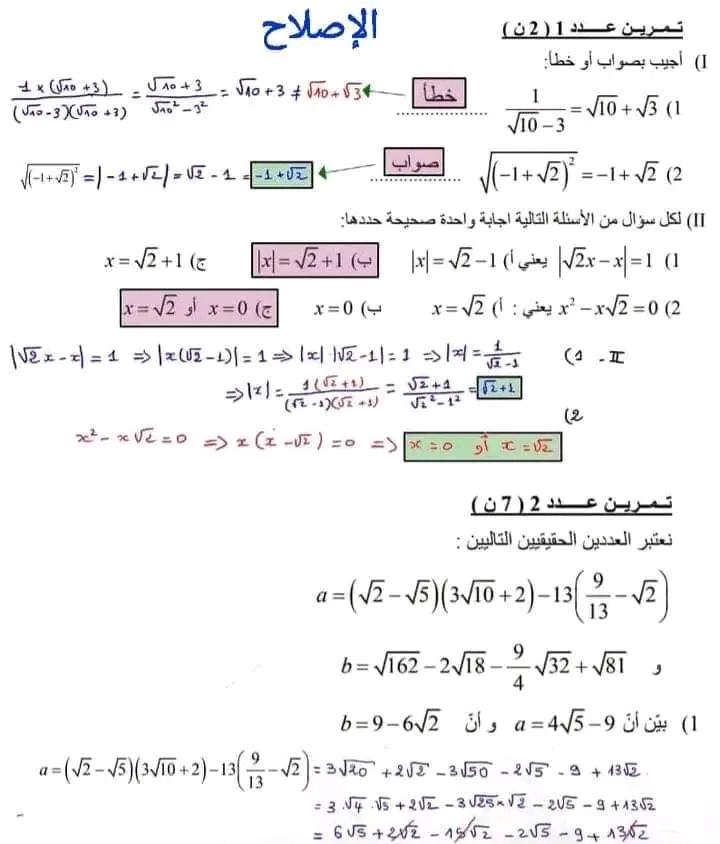 الإصلاح
تمرين عدد 1 ( 2 ن )
I) أجيب بصواب أو خطأ:
1) 1/(√10−3) = √10+√3 ............ خطأ
(1×(√10+3))/((√10−3)(√10+3)) = (√10+3)/(√10²−3²) = √10+3 ≠ √10+√3
2) √((−1+√2)²) = −1+√2 ............ صواب
√((−1+√2)²) = |−1+√2| = √2−1 = −1+√2
II) لكل سؤال من الأسئلة التالية اجابة واحدة صحيحة حددها:
1) |√2x−x|=1 يعني أ) |x|=√2−1 ب) |x|=√2+1 ج) x=√2+1
2) x²−x√2=0 يعني : أ) x=√2 ب) x=0 ج) x=0 أو x=√2
II - 1) |√2x−x|=1 ⇒ |x(√2−1)|=1 ⇒ |x|·|√2−1|=1 ⇒ |x|=1/(√2−1)
⇒ |x| = (1(√2+1))/((√2−1)(√2+1)) = (√2+1)/(√2²−1²) = √2+1
2)
x²−x√2=0 ⇒ x(x−√2)=0 ⇒ x=0 أو x=√2
تمرين عدد 2 ( 7 ن )
نعتبر العددين الحقيقيين التاليين :
a=(√2−√5)(3√10+2)−13(9/13−√2)
و b=√162−2√18−9/4√32+√81
1) بيّن أنّ a=4√5−9 و أنّ b=9−6√2
a=(√2−√5)(3√10+2)−13(9/13−√2) = 3√20+2√2−3√50−2√5−9+13√2
= 3·√4·√5+2√2−3√25×√2−2√5−9+13√2
= 6√5+2√2−15√2−2√5−9+13√2